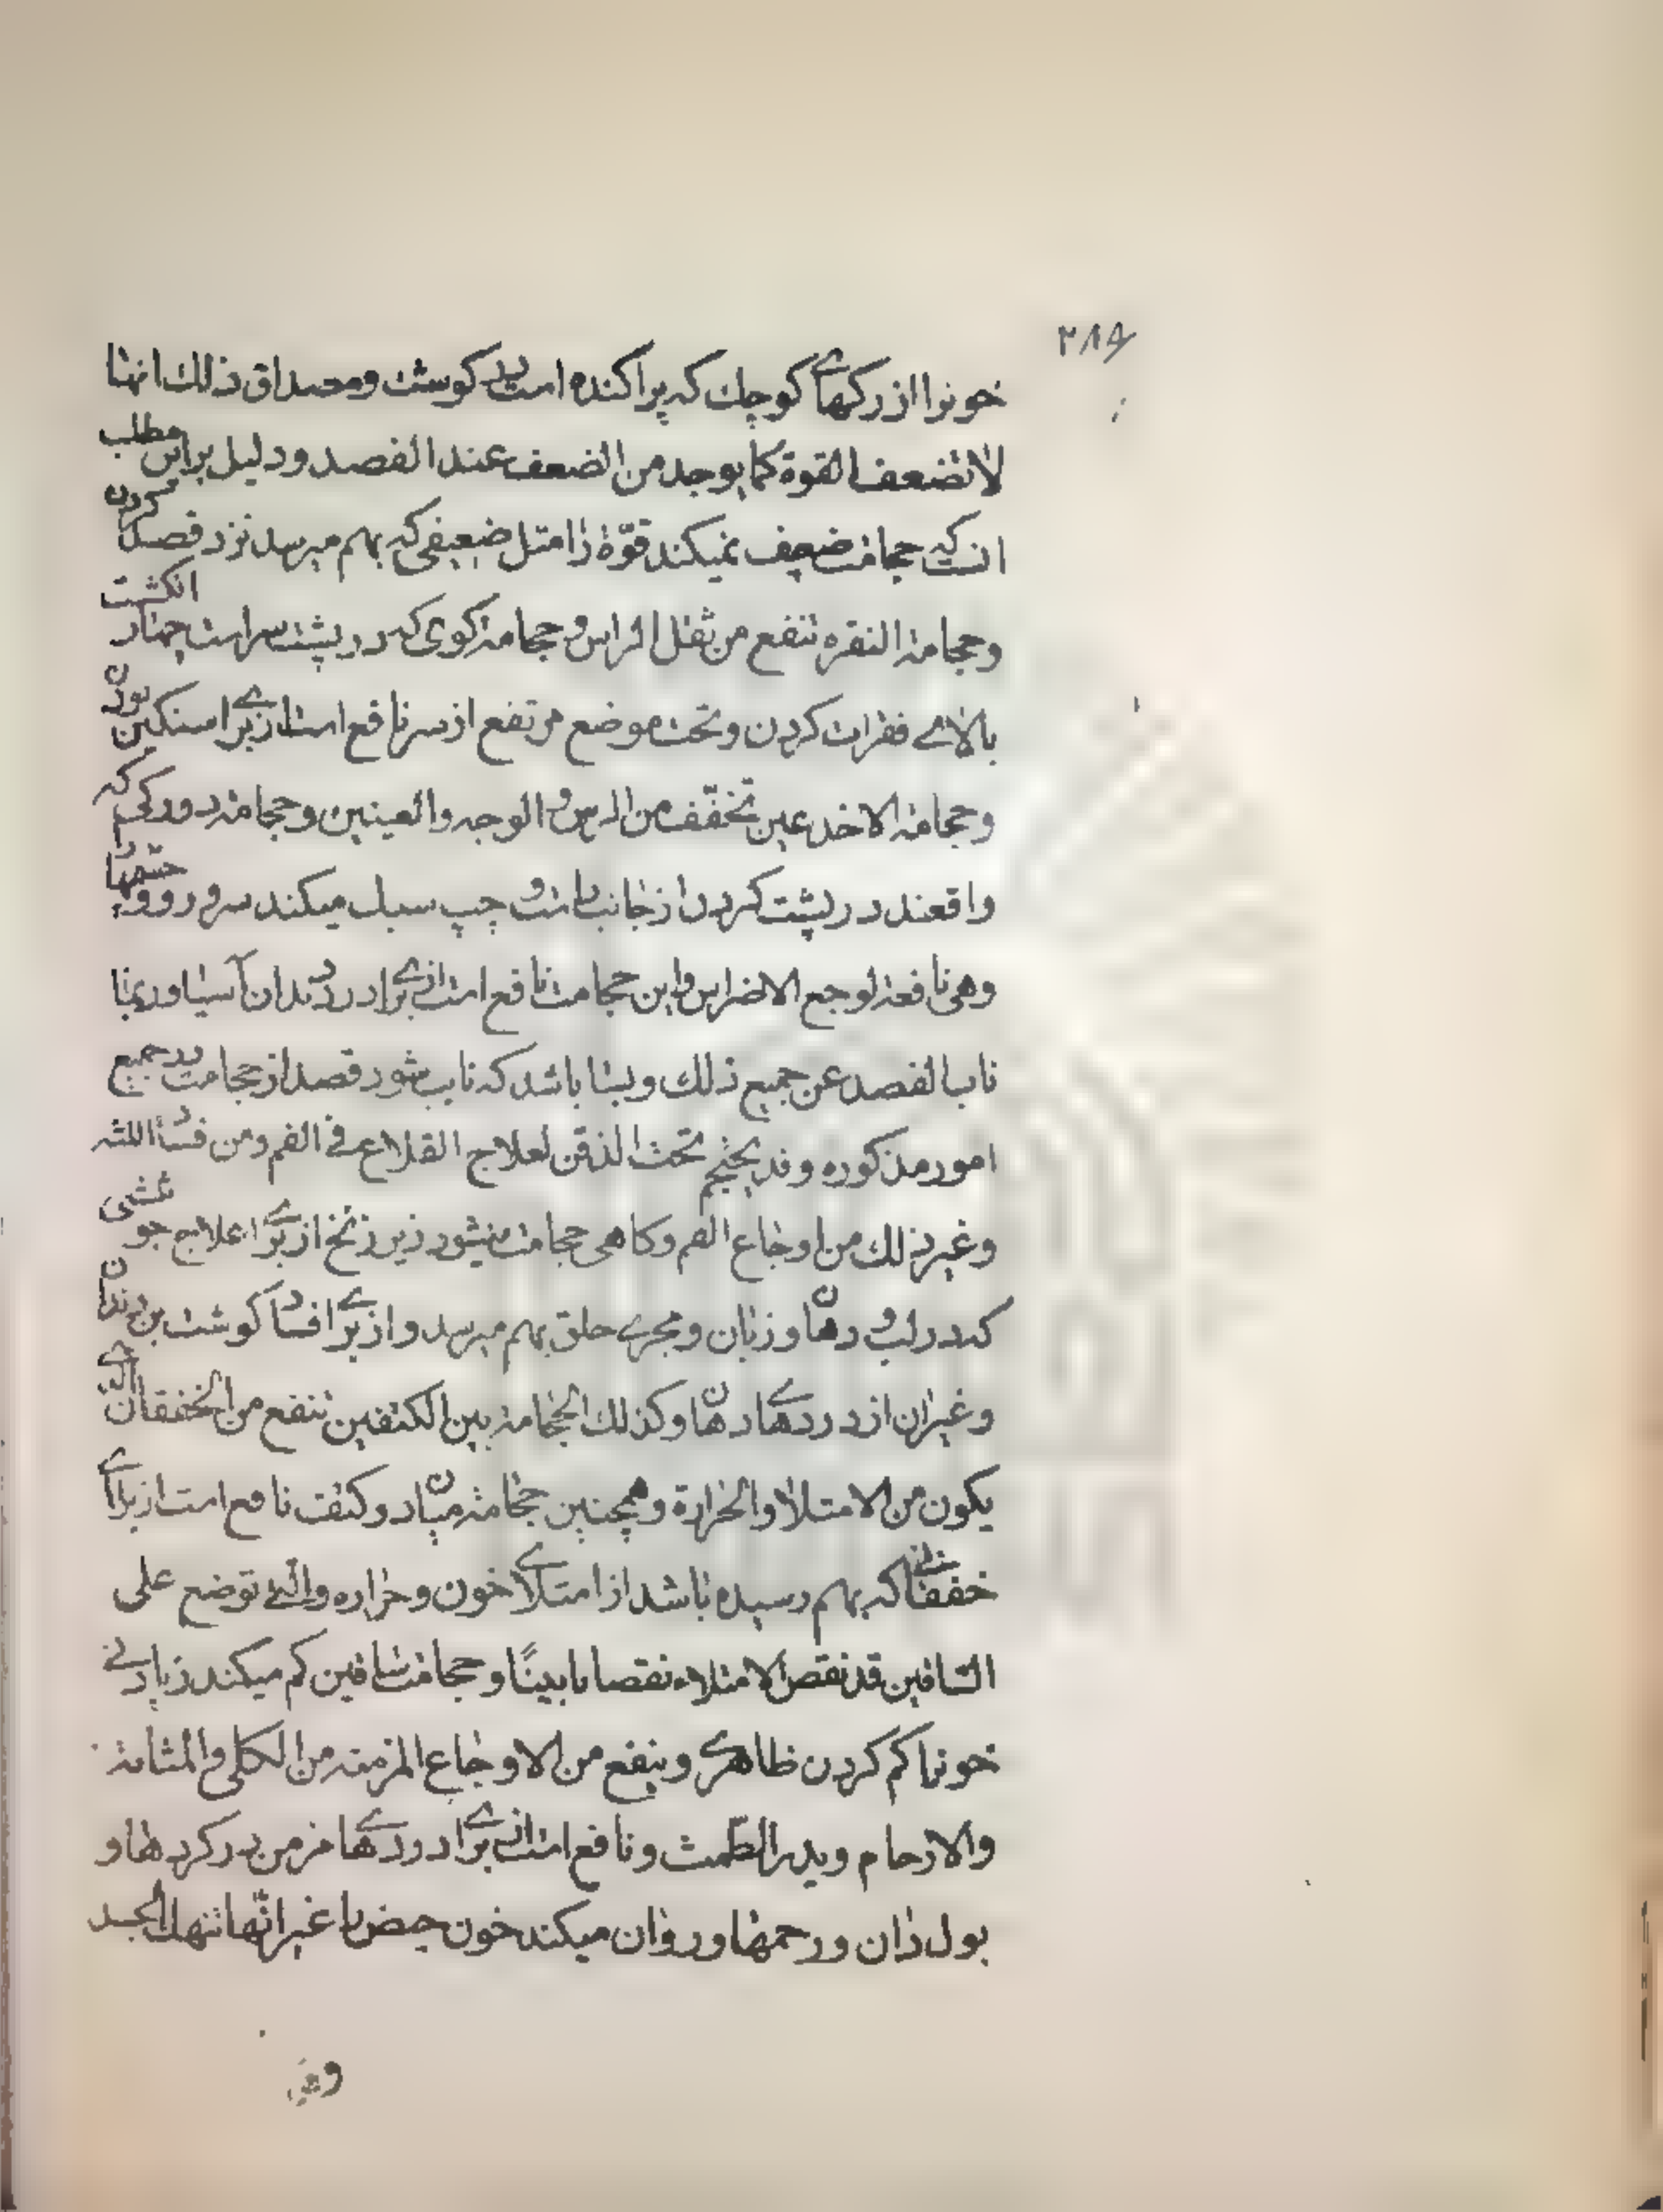 ۲۸۵
خونرا از رکهای کوچك که پراکنده است در کوشت ومصداق ذلك انها
لا تضعف القوة کما یوجد من الضعف عند الفصد ودلیل براین مطلب
انست که حجامت ضعیف نمیکند قوّة را مثل ضعیفی که بهم میرسد نزد فصد کردن
وحجامة النقره تنفع من ثقل الراس و حجامة کوی که در پشت سر است چهار انکشت
بالای فقرات کردن وتحت موضع مرتفع از سر نافع است از برای سنکین بودن
وحجامة الاخدعین تخفّف من الراس والوجه والعینین وحجامة دو رکی که
واقعند در پشت کردن از جانب راست و چپ سبك میکند سر و رو و چشمها را
وهی نافعة لوجع الاضراس واین حجامت نافع است از برای درد دندان آسیا وربما
ناب الفصد عن جمیع ذلك وبسا باشد که نایب شود فصد از حجامت در جمیع
امور مذکوره وقد یحتجم تحت الذقن لعلاج القلاع فی الفم ومن فساد اللثه
وغیر ذلك من اوجاع الفم وکاهی حجامت میشود زیر زنخ از برای علاج جوششی
که در لب و دهان و زبان ومجری حلق بهم میرسد واز برای فساد کوشت بن دندان
وغیر ان از دردهای دهان وکذلك الحجامة بین الکتفین تنفع من الخفقان الذی
یکون من الامتلاء والحرارة وهمچنین حجامة میان دو کتف نافع است از برای
خفقانی که بهم رسیده باشد از امتلای خون وحراره والتی توضع علی
الساقین قد تنقص الامتلاء نقصانا بینًا وحجامت ساقین کم میکند زیادتی
خونرا کم کردن ظاهری وینفع من الاوجاع المزمنه من الکلی والمثانة
والارحام ویدر الطّمث ونافع است از برای دردهای مزمن در کرده‌ها و
بول دان ورحمها وروان میکند خون حیض را غیر انّها تنهك الجسد